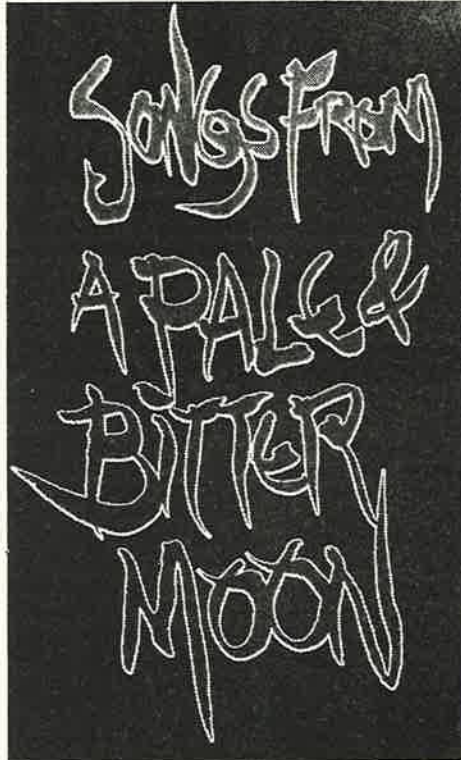 SONGS FROM
A PALE &
BITTER
MOON